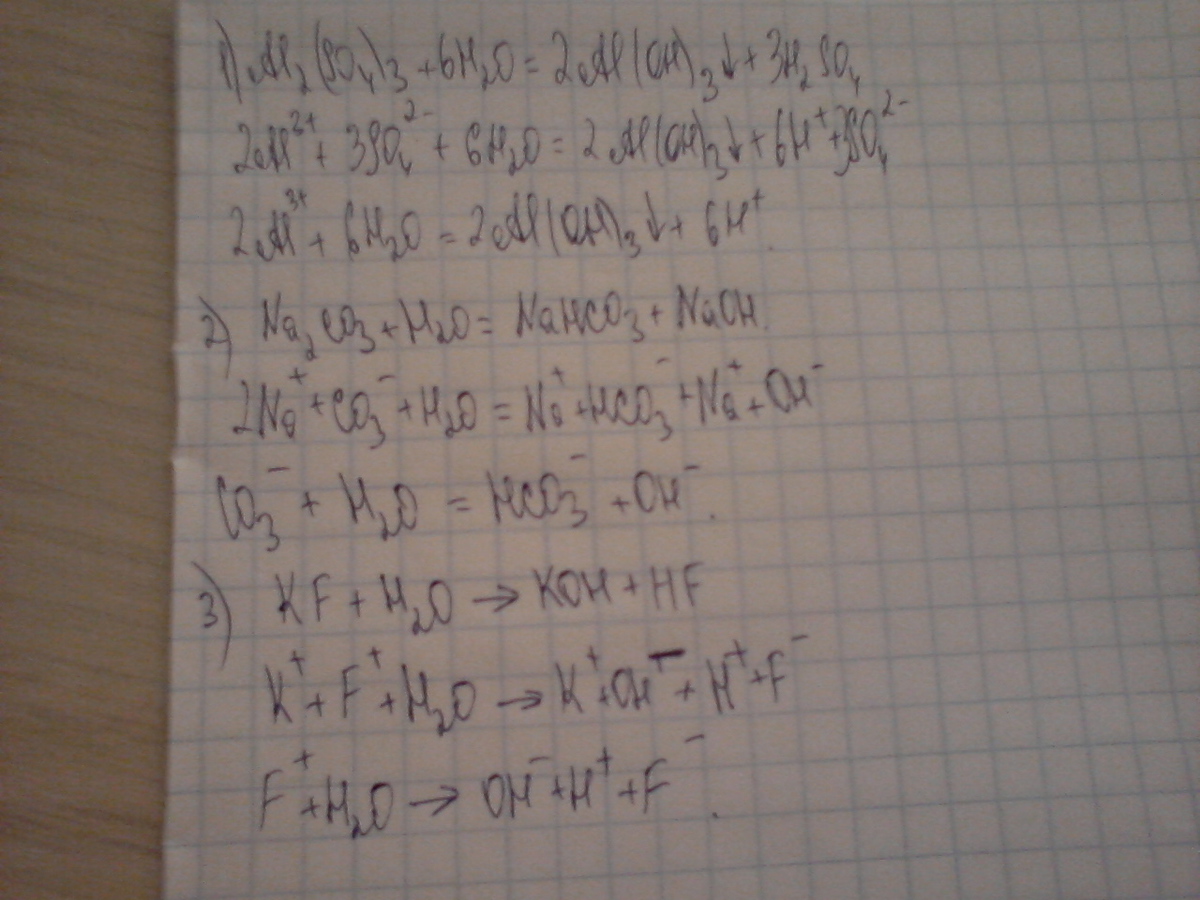 1) Al₂(SO₄)₃ + 6H₂O = 2Al(OH)₃↓ + 3H₂SO₄
2Al³⁺ + 3SO₄²⁻ + 6H₂O = 2Al(OH)₃↓ + 6H⁺ + 3SO₄²⁻
2Al³⁺ + 6H₂O = 2Al(OH)₃↓ + 6H⁺.
2) Na₂CO₃ + H₂O = NaHCO₃ + NaOH.
2Na⁺ + CO₃⁻ + H₂O = Na⁺ + HCO₃⁻ + Na⁺ + OH⁻
CO₃⁻ + H₂O = HCO₃⁻ + OH⁻.
3) KF + H₂O → KOH + HF
K⁺ + F⁺ + H₂O → K⁺ + OH⁻ + H⁺ + F⁻
F⁺ + H₂O → OH⁻ + H⁺ + F⁻.